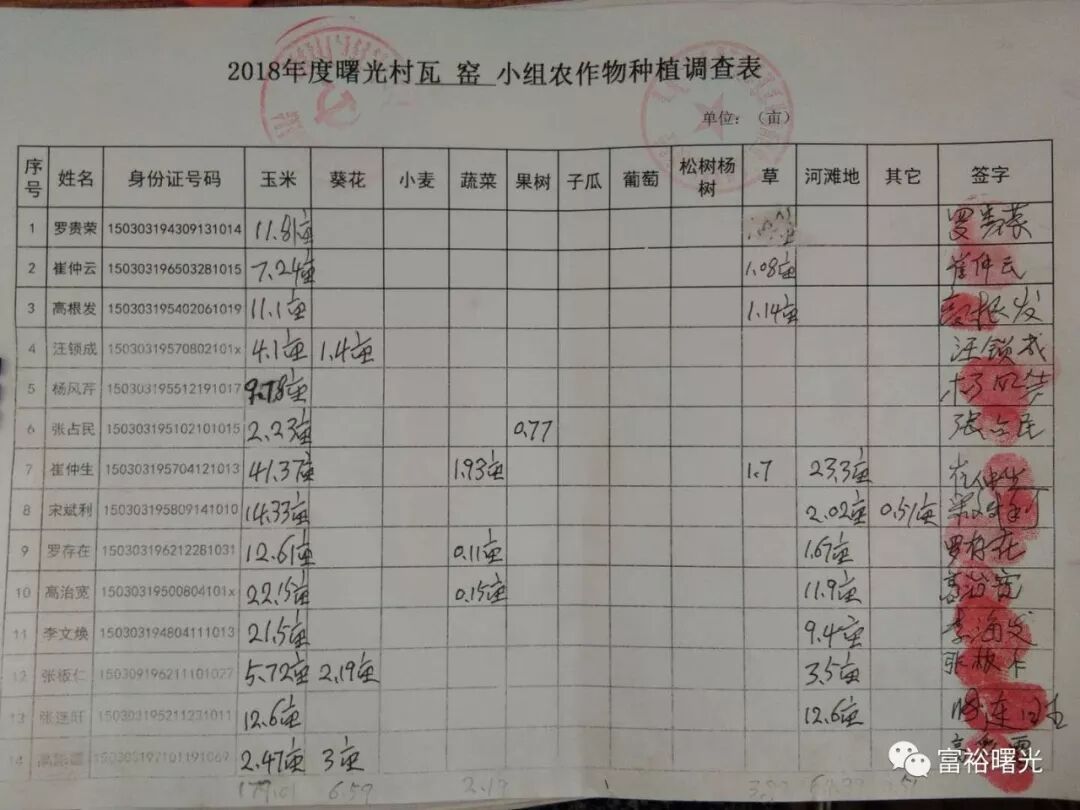 2018年度曙光村瓦 窑 小组农作物种植调查表
单位：（亩）
序号 姓名 身份证号码 玉米 葵花 小麦 蔬菜 果树 子瓜 葡萄 松树杨树 草 河滩地 其它 签字
1 罗贵荣 150303194309131014 11.81亩 罗贵荣
2 崔仲云 150303196503281015 7.24亩 1.08亩 崔仲云
3 高根发 150303195402061019 11.1亩 1.14亩 高根发
4 汪锁成 15030319570802101x 4.1亩 1.4亩 汪锁成
5 杨风芹 150303195512191017 9.78亩
6 张占民 150303195102101015 2.23亩 0.77 张占民
7 崔仲生 150303195704121013 41.37亩 1.93亩 1.7 23.3亩 崔仲生
8 宋斌利 150303195809141010 14.33亩 2.02亩 0.51亩
9 罗存在 150303196212281031 12.61亩 0.11亩 1.67亩 罗存在
10 高治宽 15030319500804101x 22.15亩 0.15亩 11.9亩 高治宽
11 李文焕 150303194804111013 21.5亩 9.4亩
12 张板仁 5.72亩 2.19亩 3.5亩
13 150303195211231011 12.6亩 12.6亩
14 2.47亩 3亩
6.59 2.19
富裕曙光